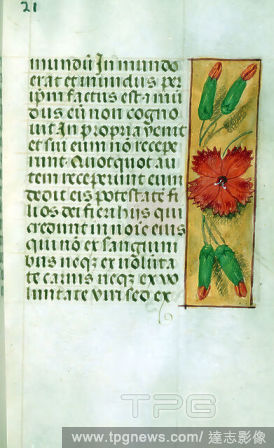 21
mundū In mundo
erat et mundus per
ip̄m factus est. et mū
dus eū non cogno
uit In propria venit
et sui eum nō recepe
runt. Quotquot au
tem receperunt eum
dedit eis potestatē fi
lios dei fieri hijs qui
credunt in noīe eius
qui nō ex sanguini
bus neqꝫ ex volūta
te carnis neqꝫ ex vo
luntate viri sed ex
TPG
www.tpgnews.com/達志影像